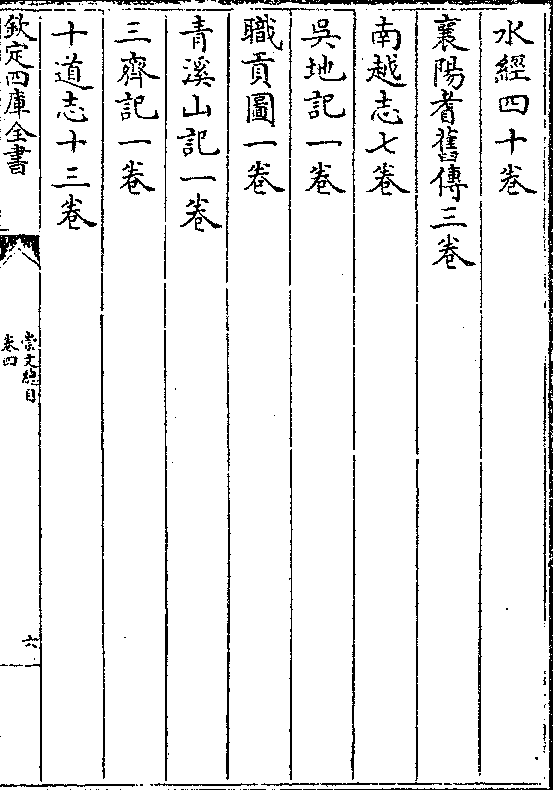 水經四十卷
襄陽耆舊傳三卷
南越志七卷
吳地記一卷
職貢圖一卷
青溪山記一卷
三齊記一卷
十道志十三卷
欽定四庫全書
崇文總目
卷四
六